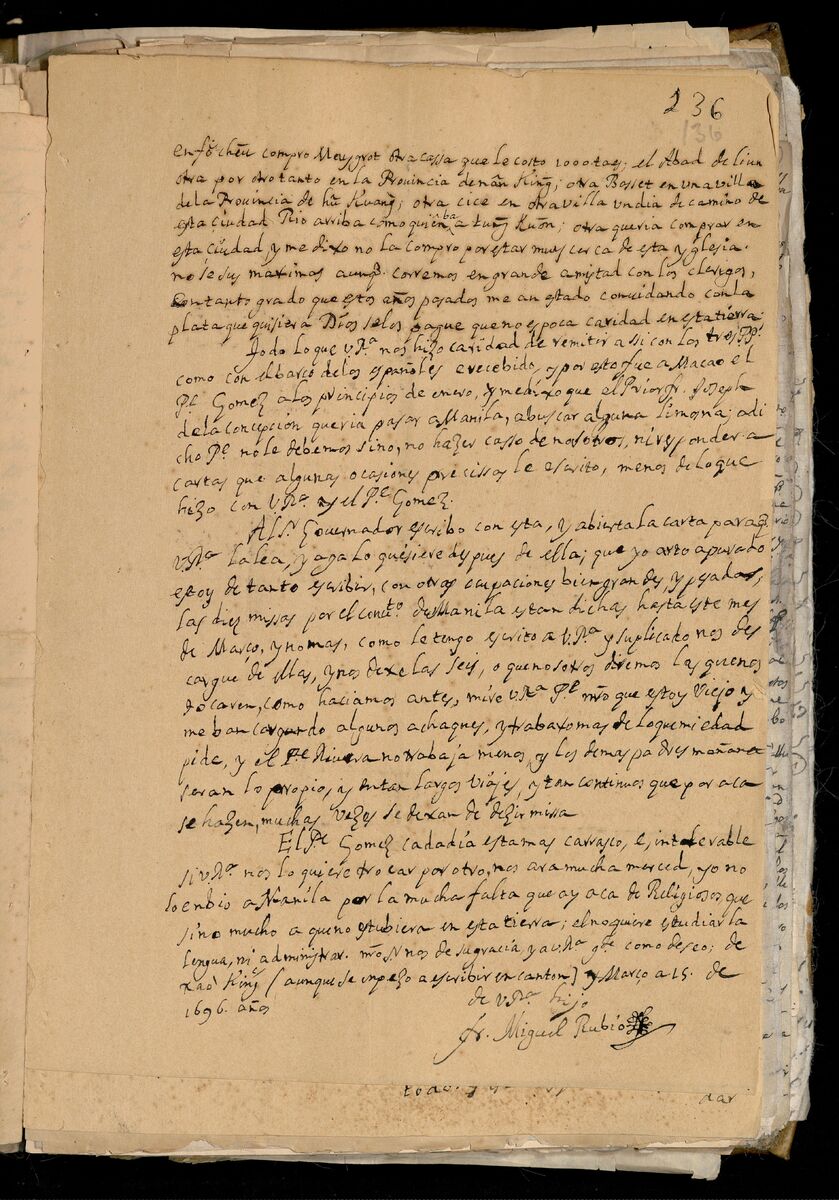 236
136
en fŏ cheu compro Maygrot otra cassa que le costo 1000 taes; el Abad de liun
otra por otro tanto en la Prouincia de nân Kīng; otra Basset en vna villa
de la Prouincia de hû Kuang; otra cice en otra villa vn dia de camino de
esta ciudad Rio arriba como quien ba a tung Kuōn; otra queria comprar en
esta ciudad, y me dixo no la compro por estar muy cerca de esta yglesia.
no se sus maximas aunq. corremos en grande amistad con los clerigos,
en tanto grado que estos años pasados me an estado conuidando con la
plata que quisiera Dios se los pague que no es poca caridad en esta tierra.
Todo lo que V.Rª nos hizo caridad de remitir assi con los tres PP.
como con el barco de los españoles e recebido, y por esto fue a Macao el
P.e Gomez a los principios de enero, y me dixo que el Prior fr. Joseph
de la concepcion queria pasar a Manila, a buscar alguna limosna; a di
cho P.e no le debemos sino, no hazer casso de nosotros, ni responder a
cartas que algunas ocasiones precissas le escrito, menos de lo que
hizo con V.Rª y el P.e Gomez.
Al S.r Gouernador escribo con esta, y abierta la carta para q
V.Rª la lea, y aga lo quisiere despues de ella; que yo arto apurado
estoy de tanto escribir, con otras ocupaciones bien grandes, y pesadas,
las diez missas por el conu.to de Manila estan dichas hasta este mes
de Março, y no mas, como le tengo escrito a V.Rª y suplicado nos des
cargue de ellas, y nos dexe las seis, o que nosotros diremos las que nos
tocaren, como haciamos antes, mire V.Rª P.e nrõ que estoy viejo y
me ban cargando algunos achaques, y trabaxo mas de lo que mi edad
pide, y el P.e Rivera no trabaja menos, y los demas padres mañana
seran lo propio, y en tan largos viajes, y tan continuos que por aca
se hazen, muchas vezes se dexan de dezir missa
El P.e Gomez cada dia esta mas carrasco, e, intolerable
si V.Rª nos lo quiere trocar por otro, nos ara mucha merced, yo no
lo enbio a Manila por la mucha falta que ay aca de Religiosos que
si no mucho a que no estubiera en esta tierra; el no quiere estudiar la
lengua, ni administrar. nrõ S.r nos de su gracia, y a V.Rª g.de como deseo; de
xaó Kíng [aunque se inpezo a escribir en canton] y Março a 15. de
1696. años
de V.Rª hijo
fr. Miguel Rubio
dar